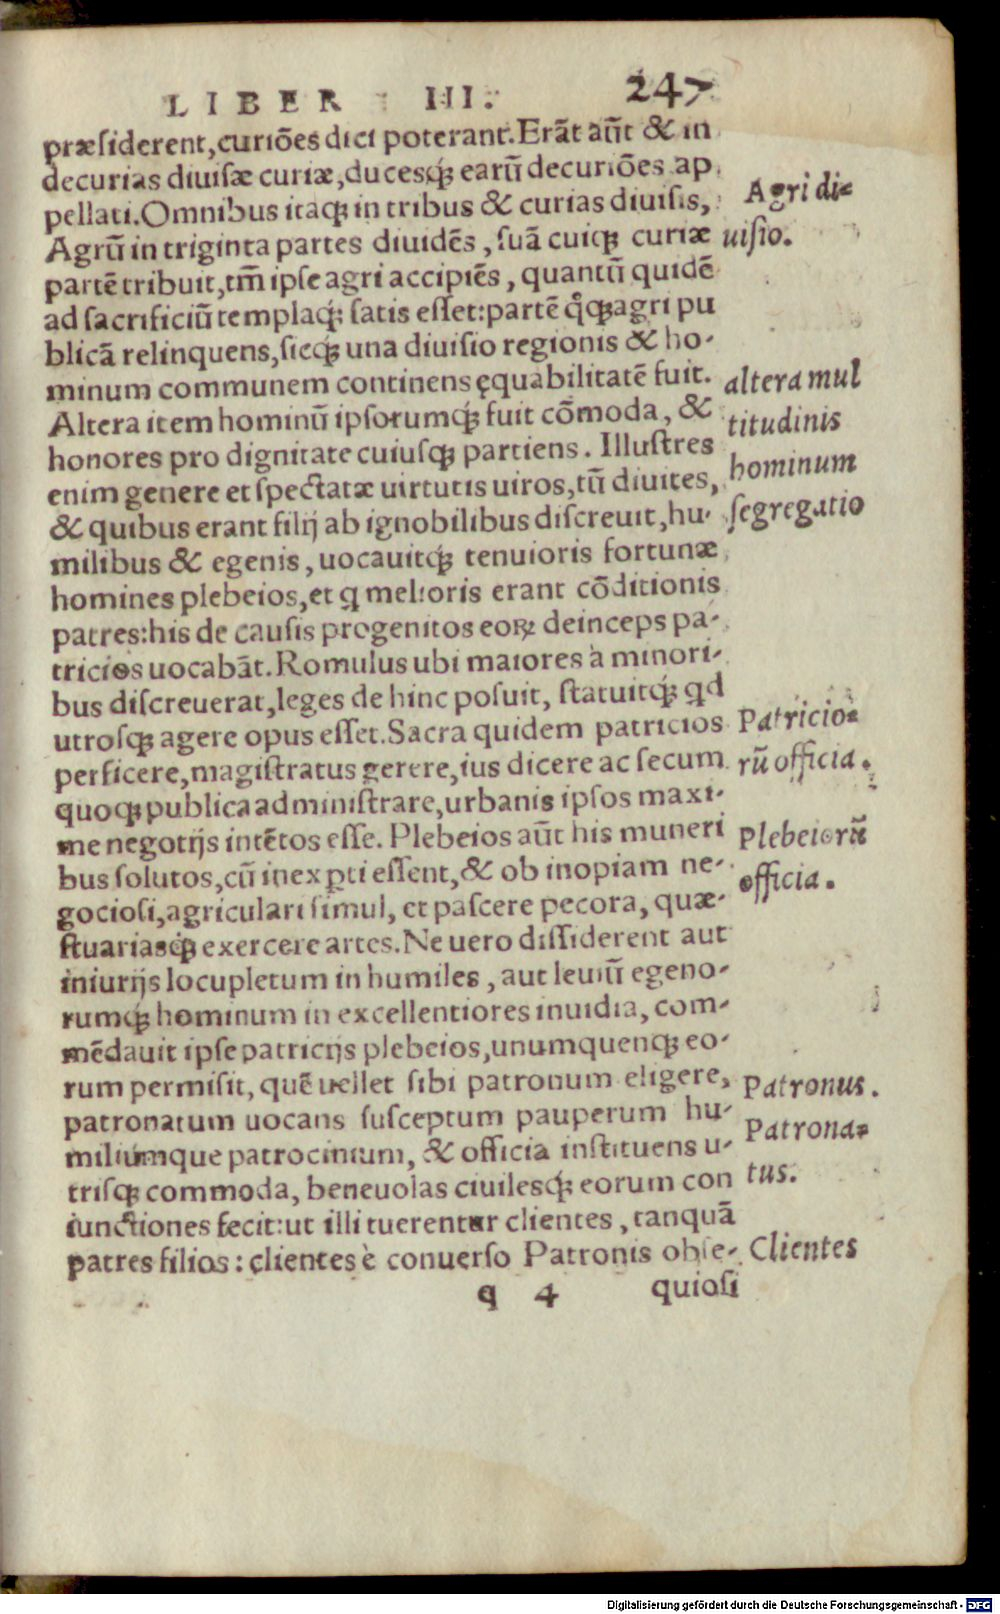 LIBER III. 247
præsiderent,curiões dici poterant.Erãt aũt & in
decurias diuisæ curiæ,ducesq́; earũ decuriões ap
pellati.Omnibus itaq; in tribus & curias diuisis,
Agri di-
Agrũ in triginta partes diuidẽs, suã cuiq; curiæ
uisio.
partẽ tribuit,tm̃ ipse agri accipiẽs, quantũ quidẽ
ad sacrificiũ templaq́; satis esset:partẽ q̊q; agri pu
blicã relinquens,sicq́; una diuisio regionis & ho-
minum communem continens ęquabilitatẽ fuit.
altera mul
Altera item hominũ ipsorumq́; fuit cõmoda, &
titudinis
honores pro dignitate cuiusq; partiens. Illustres
hominum
enim genere et spectatæ uirtutis uiros,tũ diuites,
segregatio
& quibus erant filij ab ignobilibus discreuit,hu-
milibus & egenis, uocauitq́; tenuioris fortunæ
homines plebeios,et q melioris erant cõditionis
patres:his de causis progenitos eoꝝ deinceps pa-
tricios uocabãt.Romulus ubi maiores à minori-
bus discreuerat,leges de hinc posuit, statuitq́; qd
utrosq; agere opus esset.Sacra quidem patricios
Patricio-
perficere,magistratus gerere,ius dicere ac secum
rũ officia.
quoq; publica administrare,urbanis ipsos maxi-
me negotijs intẽtos esse. Plebeios aũt his muneri
Plebeiorũ
bus solutos,cũ inexꝑti essent,& ob inopiam ne-
officia.
gociosi,agriculari simul, et pascere pecora, quæ-
stuariasq́; exercere artes.Ne uero dissiderent aut
iniurijs locupletum in humiles, aut leuiũ egeno-
rumq́; hominum in excellentiores inuidia, com-
mẽdauit ipse patricijs plebeios,unumquenq; eo-
rum permisit, quẽ uellet sibi patronum eligere,
Patronus.
patronatum uocans susceptum pauperum hu-
Patrona-
miliumque patrocinium, & officia instituens u-
trisq; commoda, beneuolas ciuilesq́; eorum con
tus.
iunctiones fecit:ut illi tuerentur clientes, tanquã
patres filios: clientes è conuerso Patronis obse-
Clientes
q 4 quiosi
Digitalisierung gefördert durch die Deutsche Forschungsgemeinschaft - DFG